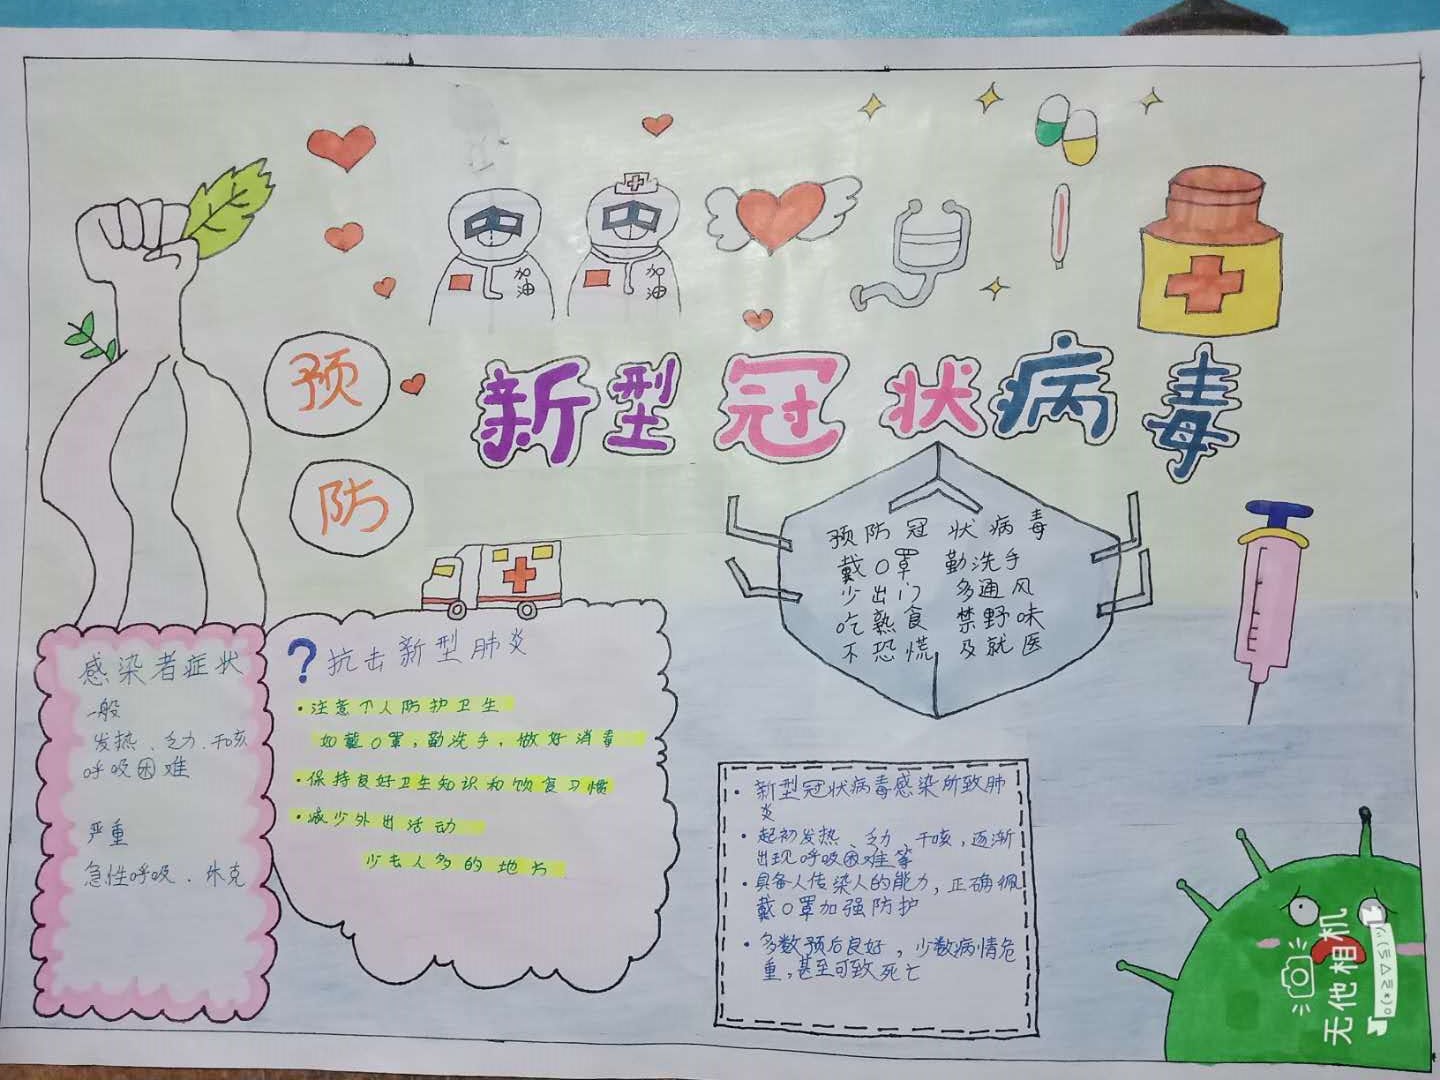 加油
加油
预防
新型冠状病毒
预防冠状病毒
戴口罩 勤洗手
少出门 多通风
吃熟食 禁野味
不恐慌 及就医
感染者症状
一般
发热、乏力、干咳
呼吸困难
严重
急性呼吸、休克
?抗击新型肺炎
·注意个人防护卫生
如戴口罩,勤洗手,做好消毒
·保持良好卫生知识和饮食习惯
·减少外出活动
少去人多的地方
·新型冠状病毒感染所致肺
炎
·起初发热、乏力、干咳,逐渐
出现呼吸困难等
·具备人传染人的能力,正确佩
戴口罩加强防护
·多数预后良好,少数病情危
重,甚至可致死亡
无他相机